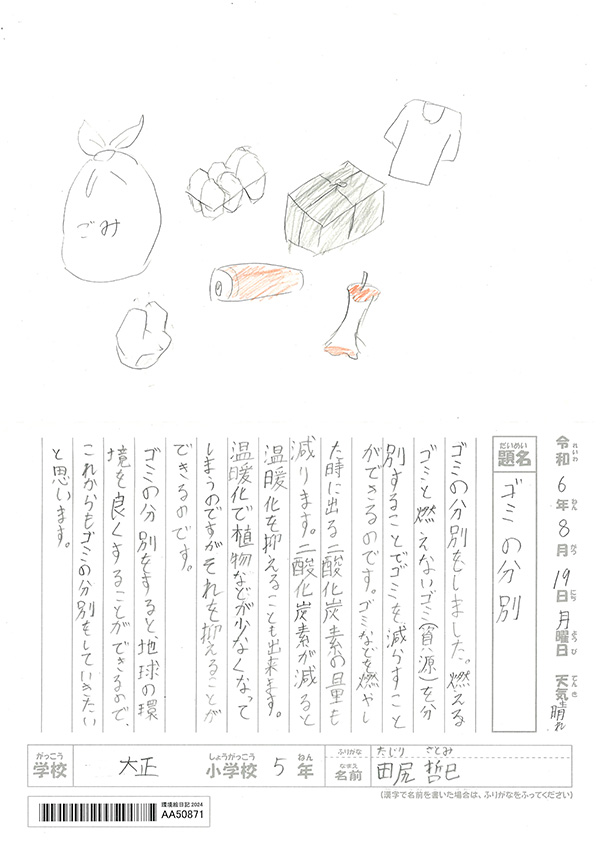 ごみ
令和6年8月19日月曜日 天気晴れ
れいわ ねん がつ にち ようび てんき
だいめい
題名 ゴミの分別
ゴミの分別をしました。燃える
ゴミと燃えないゴミ(資源)を分
別することでゴミを減らすこと
ができるのです。ゴミなどを燃やし
た時に出る二酸化炭素の量も
減ります。二酸化炭素が減ると
温暖化を抑えることも出来ます。
温暖化で植物などが少なくなって
しまうのですがそれを抑えることが
できるのです。
ゴミの分別をすると地球の環
境を良くすることができるので、
これからもゴミの分別をしていきたい
と思います。
がっこう しょうがっこう ねん
学校 大正 小学校 5年
ふりがな たじり さとみ
なまえ
名前 田尻 哲巳
(漢字で名前を書いた場合は、ふりがなをふってください)
環境絵日記2024
AA50871